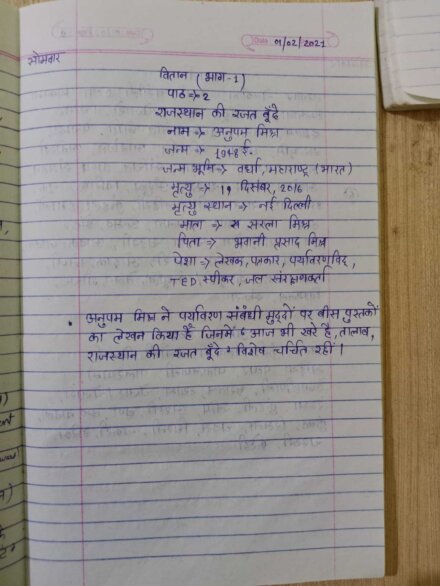 01/02/2021
सोमवार
वितान (भाग-1)
पाठ ⇒ 2
राजस्थान की रजत बूँदे
नाम ⇒ अनुपम मिश्र
जन्म ⇒ 1948 ई.
जन्म भूमि ⇒ वर्धा, महाराष्ट्र (भारत)
मृत्यु ⇒ 19 दिसंबर, 2016
मृत्यु स्थान ⇒ नई दिल्ली
माता ⇒ सरला मिश्र
पिता ⇒ भवानी प्रसाद मिश्र
पेशा ⇒ लेखक, पत्रकार, पर्यावरणविद,
TED स्पीकर, जल संरक्षणकर्ता
• अनुपम मिश्र ने पर्यावरण संबंधी मुद्दों पर बीस पुस्तकों
का लेखन किया है जिनमें 'आज भी खरे है, तालाब,
राजस्थान की रजत बूँदे' विशेष चर्चित रही।